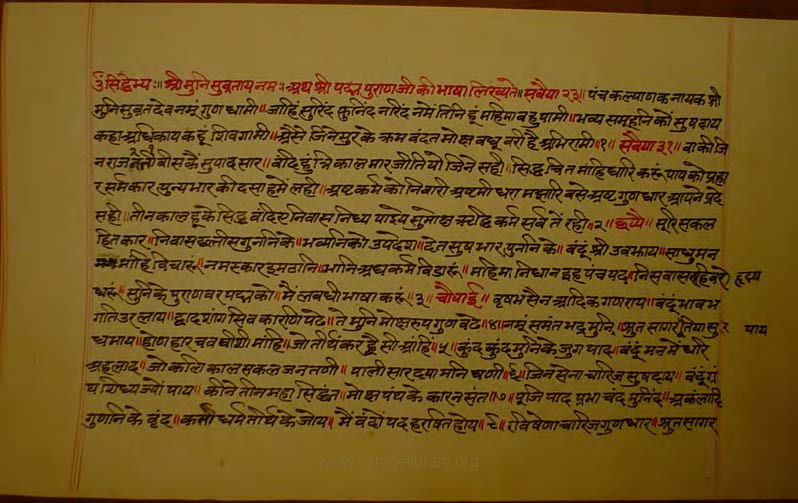 ॐ सिद्वेभ्यः॥ श्री मुनिसुव्रताय नमः॥ अथ श्री पद्मपुराण जी की भाषा लिख्यते॥ सवैया २३॥ पंच कल्याणक नायक श्री
मुनिसुव्रत देव नमूं गुण धामी॥ जाहि सुरिंद फुनिंद नरिंद नमें तिनि हूं महिमा बहु पामी॥ भव्य समूहनि कों सुषदाय
कहा अधिकाय कहूं शिवगामी॥ श्रैसे जिनेसुर के क्रम वंदत मोक्ष बधू वरी है अभिरामी॥१॥ सवैया ३१॥ बाकी जि
नराज बीस के सुपाद सार॥ वंदि हुं त्रिकाल मार जीति यो जिने सही॥ सिद्ध चित मांहि धारि करूं पाप को प्रहा
र सर्मकार पुन्य भार की दसा हमें लही॥ अष्ट कर्म कों निवारी अष्टमी धरा मझारि वसे अष्ट गुण धार आपने प्रदे
सही॥ तीन काल हू के सिद्ध वंदि निवास निध्य पाइये सुमोक्ष ऋद्धि कर्म सर्व तें रही॥२॥ छप्पै॥ सूरि सकल
हितकार॥ निवास छत्तीस गुननि के॥ भव्यनि को उपदेश॥ देत सुष भार पुननि के॥ वंदूं श्री उवझाय॥ साधु मन
मांहि विचारूं॥ नमस्कार इम ठानि॥ भानि अघ कर्म विडारूं॥ महिमा निधान इह पंच पद॥ हृदय
धरूं॥ सुनि के पुराण वर पद्म को॥ मैं लवधी भाषा करूं॥३॥ चौपाई॥ वृषभ सैन आदिक गणराय॥ वंदूं भाव भ
गति उर लाय॥ द्वादशांग सिव कारणि पढे॥ ते मुनि मोक्ष रुप गुण बढे॥४॥ नमूं समंत भद्र मुनि॥ श्रुत सागर पाय
ध्रमाय॥ होणहार चव वीशी मांहि॥ जो तीर्थंकर ह्वै सो आंहि॥५॥ कुंद कुंद मुनि के जुग पाद॥ वंदूं मन में धरि
अहलाद॥ जो कलि काल सकल जन तणी॥ पाली सार दया मनि घणी॥६॥ जिन सेना चारिज सुषदाय॥ वंदूं ग्रं
थ शिध्य ज्यों पाय॥ कीने तीन महा सिद्धंत॥ मोक्ष पंथ के कारन संत॥७॥ पूजि पाद प्रभाचंद मुनिंद॥ अकलंकादि
गुणनि के वृंद॥ कर्ता धर्म तीर्थ के जोय॥ मैं वंदों पद हरषित होय॥८॥ रविषेणाचारिज गुण धार॥ श्रुत सागर
www.vitraglibrary.org